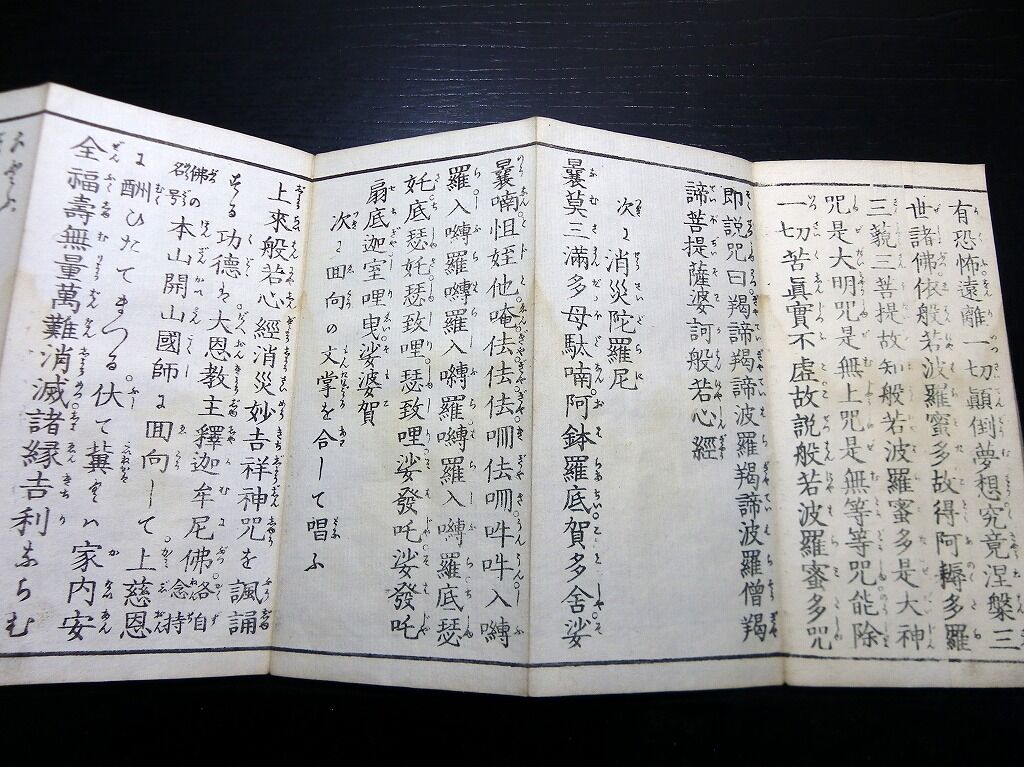 有恐怖遠離一切顛倒夢想究竟涅槃三
世諸佛依般若波羅蜜多故得阿耨多羅
三藐三菩提故知般若波羅蜜多是大神
咒是大明咒是無上咒是無等等咒能除
一切苦眞實不虛故説般若波羅蜜多咒
即説咒曰羯諦羯諦波羅羯諦波羅僧羯
諦菩提薩婆訶般若心經
次ニ消災陀羅尼
曩莫三滿多母駄喃阿鉢羅底賀多舍娑
曩喃怛姪他唵佉佉佉呬佉呬吽吽入嚩
羅入嚩羅嚩羅入嚩羅嚩羅入嚩羅底瑟
姹底瑟姹瑟致哩瑟致哩娑發吒娑發吒
扇底迦室哩曳娑婆賀
次ニ回向の文掌を合して唱ふ
上來般若心經消災妙吉祥神咒を諷誦
する功德は大恩教主釋迦牟尼佛
各自念持佛の名号
本山開山國師に回向して上慈恩
に酬ひたてまつる伏て冀くハ家内安
全福壽無量萬難消滅諸縁吉利ならむ